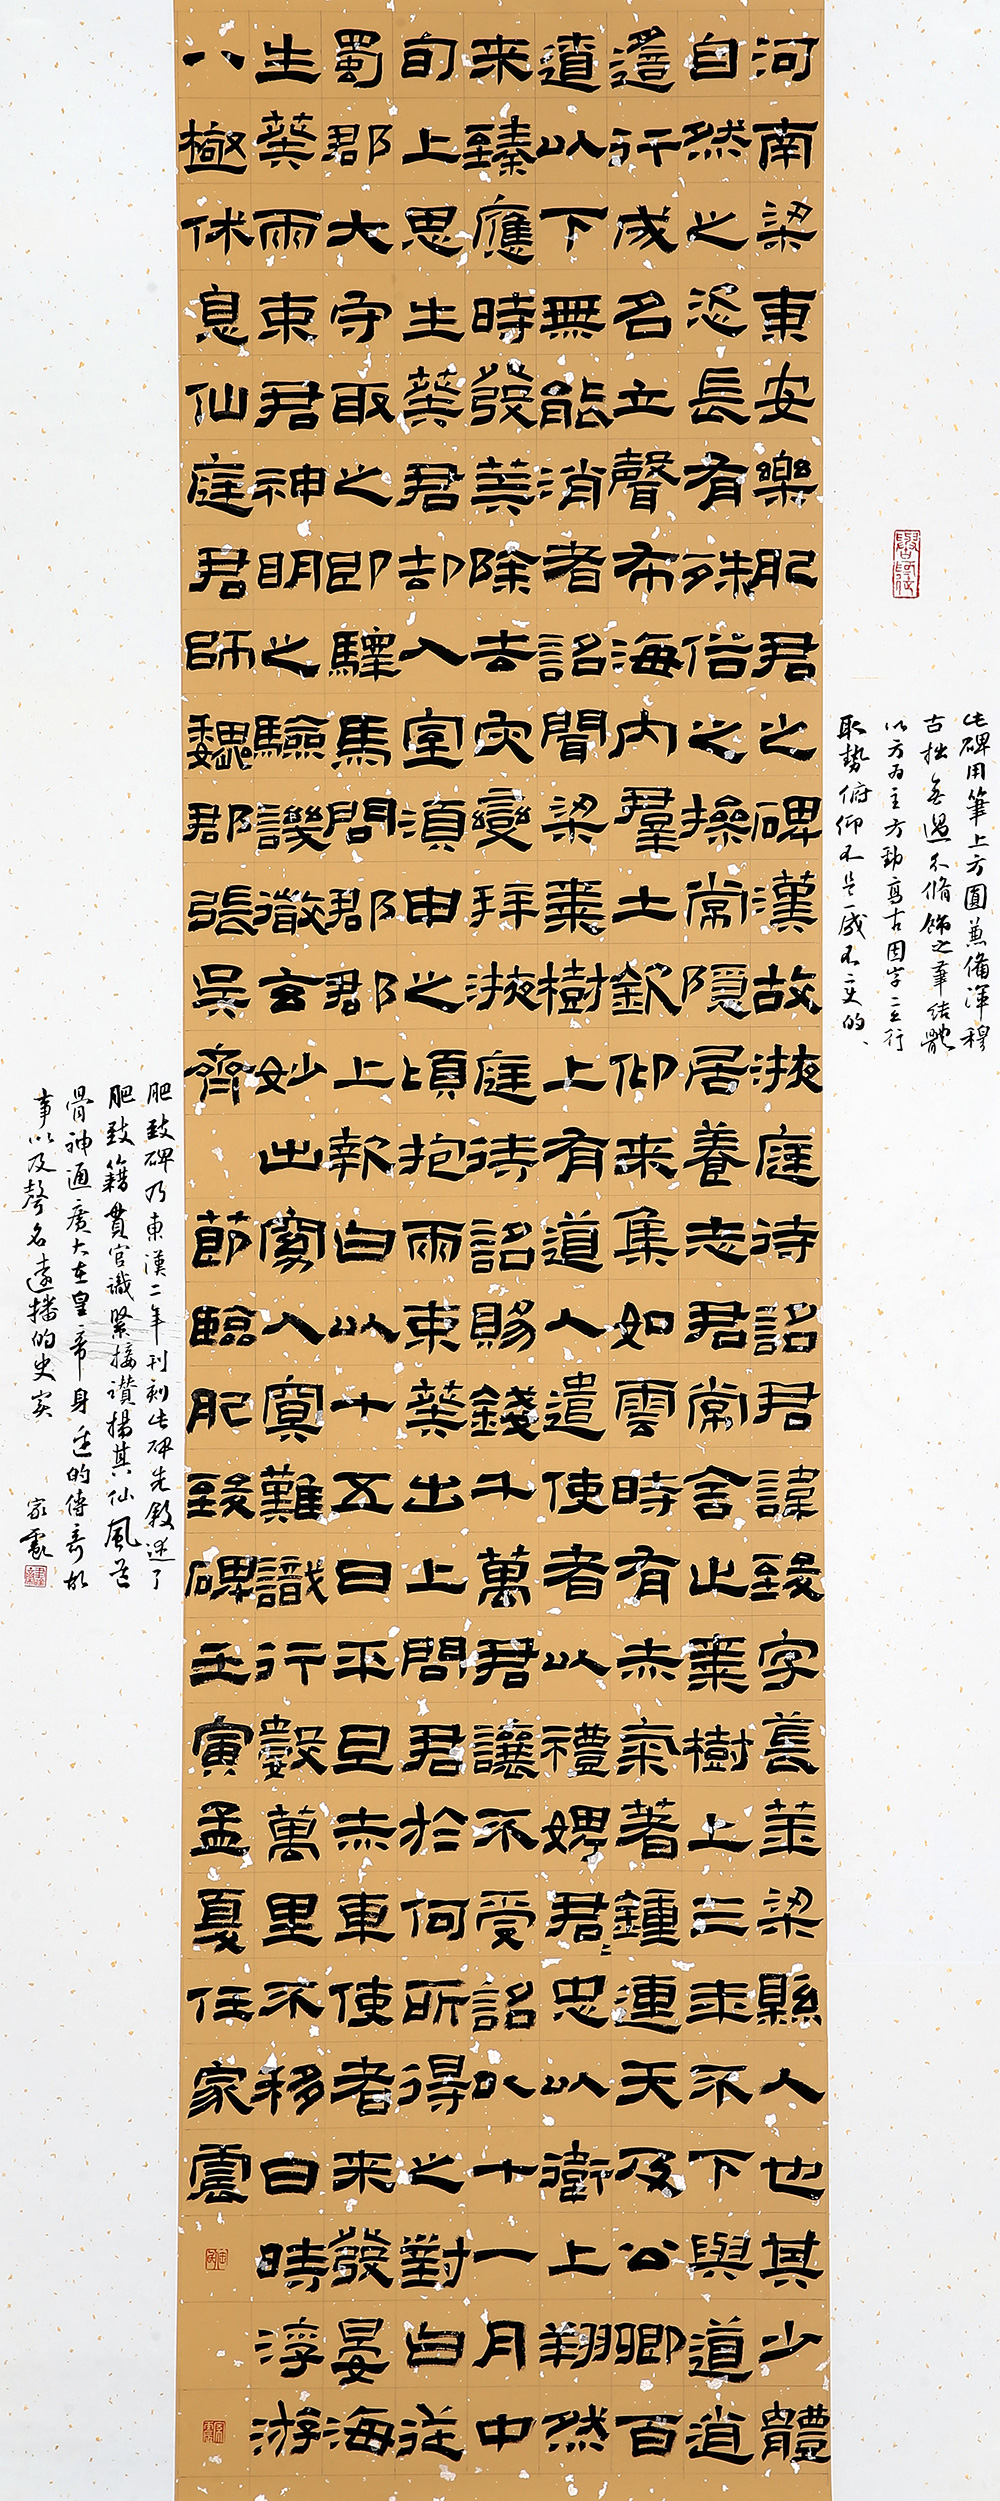 此碑用筆上方圓兼備渾穆
古拙無過多脩飾之筆結體
以方为主方勁高古因字立行
取勢俯仰不是一成不变的、
河南梁東安樂肥君之碑漢故掖庭待詔君諱致字萇華梁縣人也其少體
自然之恣長有殊俗之操常隱居養志君常舍止棗樹上三年不下與道逍
遙行成名立聲布海內群士欽仰来集如雲時有赤氣著鍾連天及公卿百
遼以下無能消者詔聞梁棗樹上有道人遣使者以禮娉君〻忠以衛上翔然
来臻應時發筭除去灾變拜掖庭待詔賜錢千萬君讓不受詔以十一月中
旬上思生葵君却入室須申之頃抱兩束葵出上問君於何所得之對曰從
蜀郡大守取之即驛馬問郡郡上報白以十五日平旦赤車使者来發晏海
生葵兩束君神明之驗譏徹玄妙出窈入冥難識行數萬里不移日時浮游
八極休息仙庭君師魏郡張吳齊 節臨肥致碑壬寅孟夏任家雲
肥致碑乃東漢二年刊刻此碑先敘述了
肥致籍貫官識緊接讚揚其仙風道
骨神通廣大在皇帝身邊的傳奇故
事以及聲名遠播的史实 家雲